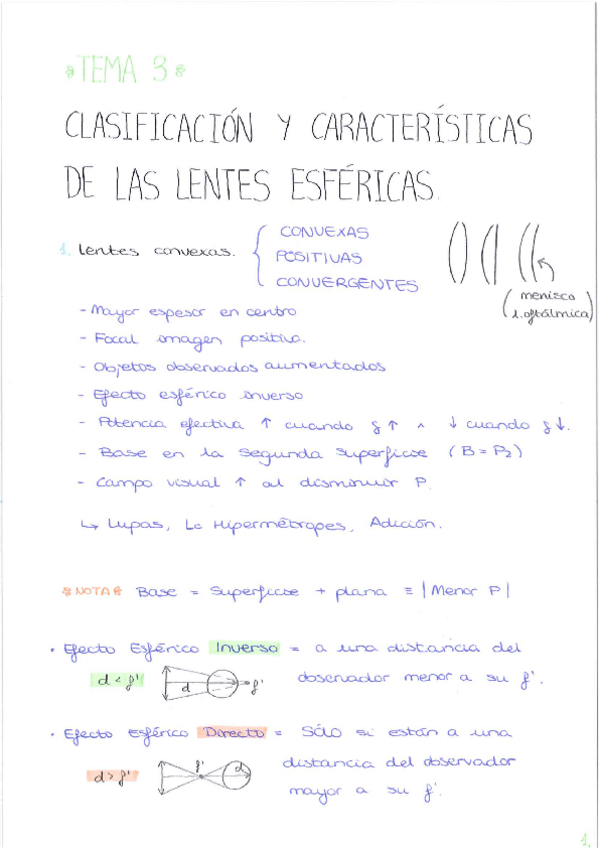 *TEMA 3*
CLASIFICACIÓN Y CARACTERÍSTICAS
DE LAS LENTES ESFÉRICAS.
1. lentes convexas. { CONVEXAS
POSITIVAS
CONVERGENTES
(menisco
l. oftálmica)
- Mayor espesor en centro
- Focal imagen positivo.
- Objetos observados aumentados
- Efecto esférico inverso
- Potencia efectiva ↑ cuando δ↑ ^ ↓ cuando δ↓.
- Base en la segunda superficie (B=P₂)
- Campo visual ↑ al disminuir P.
↳ Lupas, Lo Hipermétropes, Adición.
*NOTA* Base = Superficie + plana ≡ |Menor P|
• Efecto Esférico Inverso = a una distancia del
d < f' d f' observador menor a su f'.
• Efecto Esférico Directo = Sólo si están a una
distancia del observador
d > f' f' d
mayor a su f'.
1.